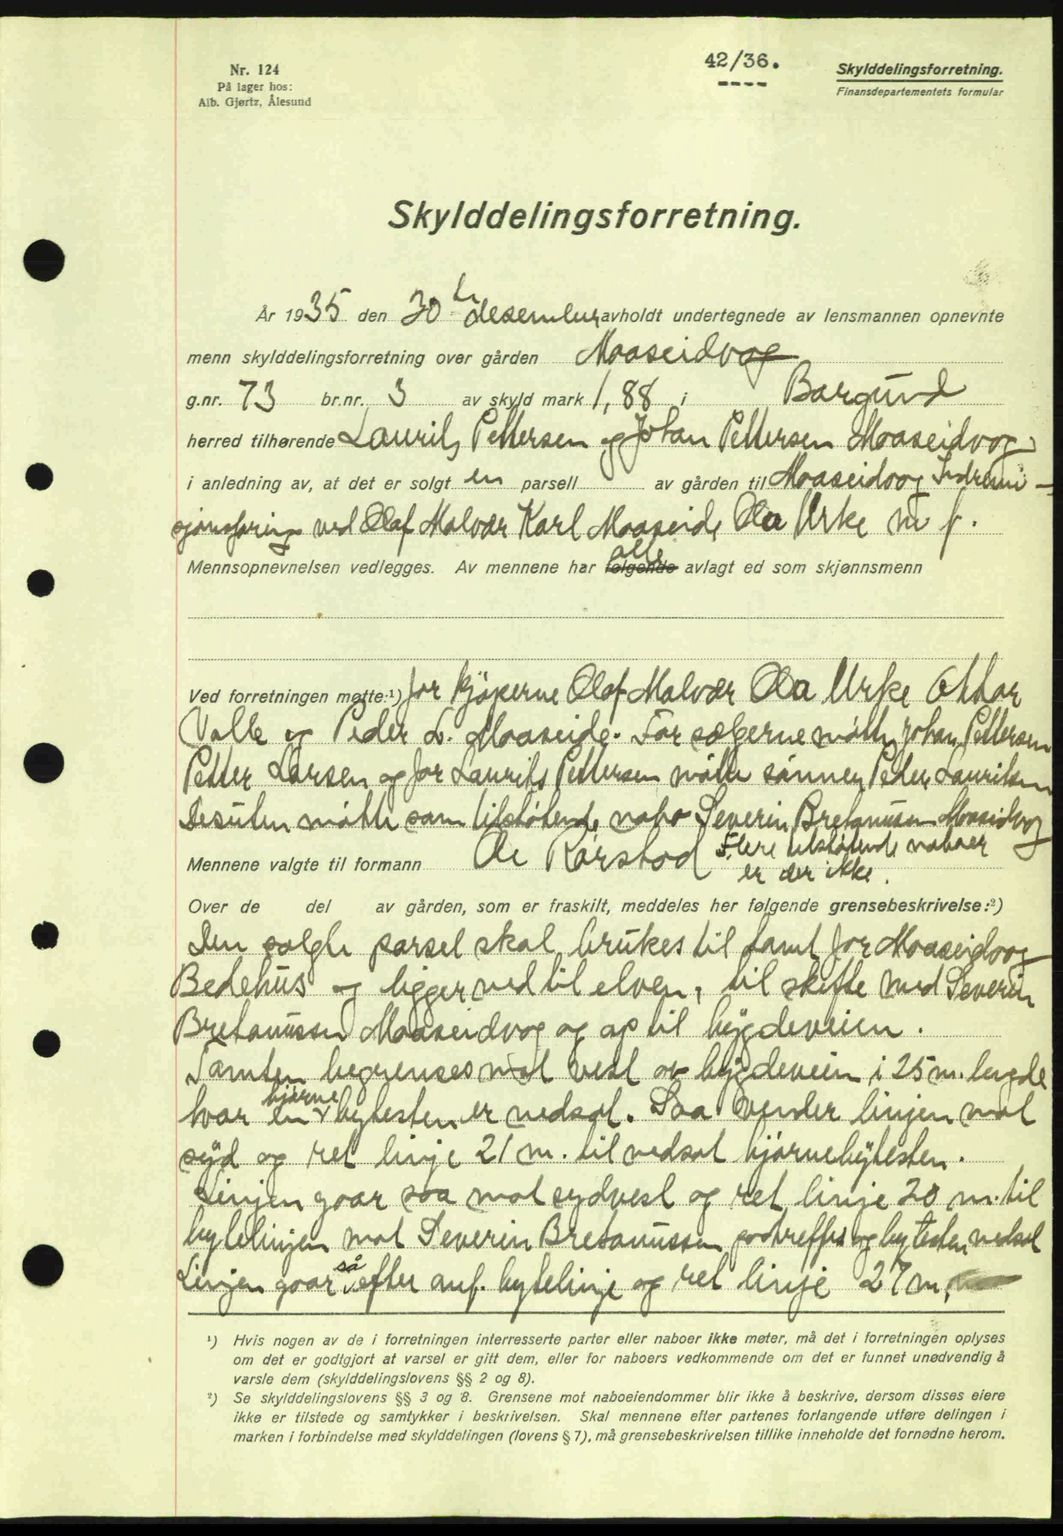 Nr. 124
På lager hos:
Alb. Gjørtz, Ålesund
42/36.
Skylddelingsforretning.
Finansdepartementets formular
Skylddelingsforretning.
År 1935 den 30te desember avholdt undertegnede av lensmannen opnevnte
menn skylddelingsforretning over gården Maaseidvog
g.nr. 73 br.nr. 3 av skyld mark 1,88 i Borgund
herred tilhørende Laurits Pettersen og Johan Pettersen Maaseidvog
i anledning av, at det er solgt en parsell av gården til Maaseidvog Indremi-
sjonsforing ved Olaf Malvær Karl Maaseide Ola Urke m fl.
alle
Mennsopnevnelsen vedlegges. Av mennene har følgende avlagt ed som skjønnsmenn
Ved forretningen møtte:¹) for kjøperne Olaf Malvær Ola Urke Ottar
Valle og Peder L. Maaseide. For sælgerne møtte Johan Pettersen
Petter Larsen og for Laurits Pettersen møtte sønnen Peder Lauritsen
Desuten møtte som tilstøtende nabo Severin Bretanussen Maaseidvog
Mennene valgte til formann Ole Rørstad Flere tilstøtende naboer
er der ikke.
Over de del av gården, som er fraskilt, meddeles her følgende grensebeskrivelse:²)
Den solgte parsel skal brukes til tomt for Maaseidvog
Bedehus og ligger ved til elven, til skifte med Severin
Bretanussen Maaseidvog og op til bygdeveien.
Tomten begrenses mot vest av bygdeveien i 25 m. lengde
hjørne
hvor en bytesten er nedsat. Saa vender linjen mot
syd og ret linje 21 m. til nedsat hjørnebytesten.
Linjen gaar saa mot sydvest og ret linje 20 m. til
bytelinjen mot Severin Bretanussen paatreffes og bytesten nedsat
så
Linjen gaar efter anf. bytelinje og ret linje 27 m.
¹) Hvis nogen av de i forretningen interresserte parter eller naboer ikke møter, må det i forretningen oplyses
om det er godtgjort at varsel er gitt dem, eller for naboers vedkommende om det er funnet unødvendig å
varsle dem (skylddelingslovens §§ 2 og 8).
²) Se skylddelingslovens §§ 3 og 8. Grensene mot naboeiendommer blir ikke å beskrive, dersom disses eiere
ikke er tilstede og samtykker i beskrivelsen. Skal mennene efter partenes forlangende utføre delingen i
marken i forbindelse med skylddelingen (lovens § 7), må grensebeskrivelsen tillike inneholde det fornødne herom.